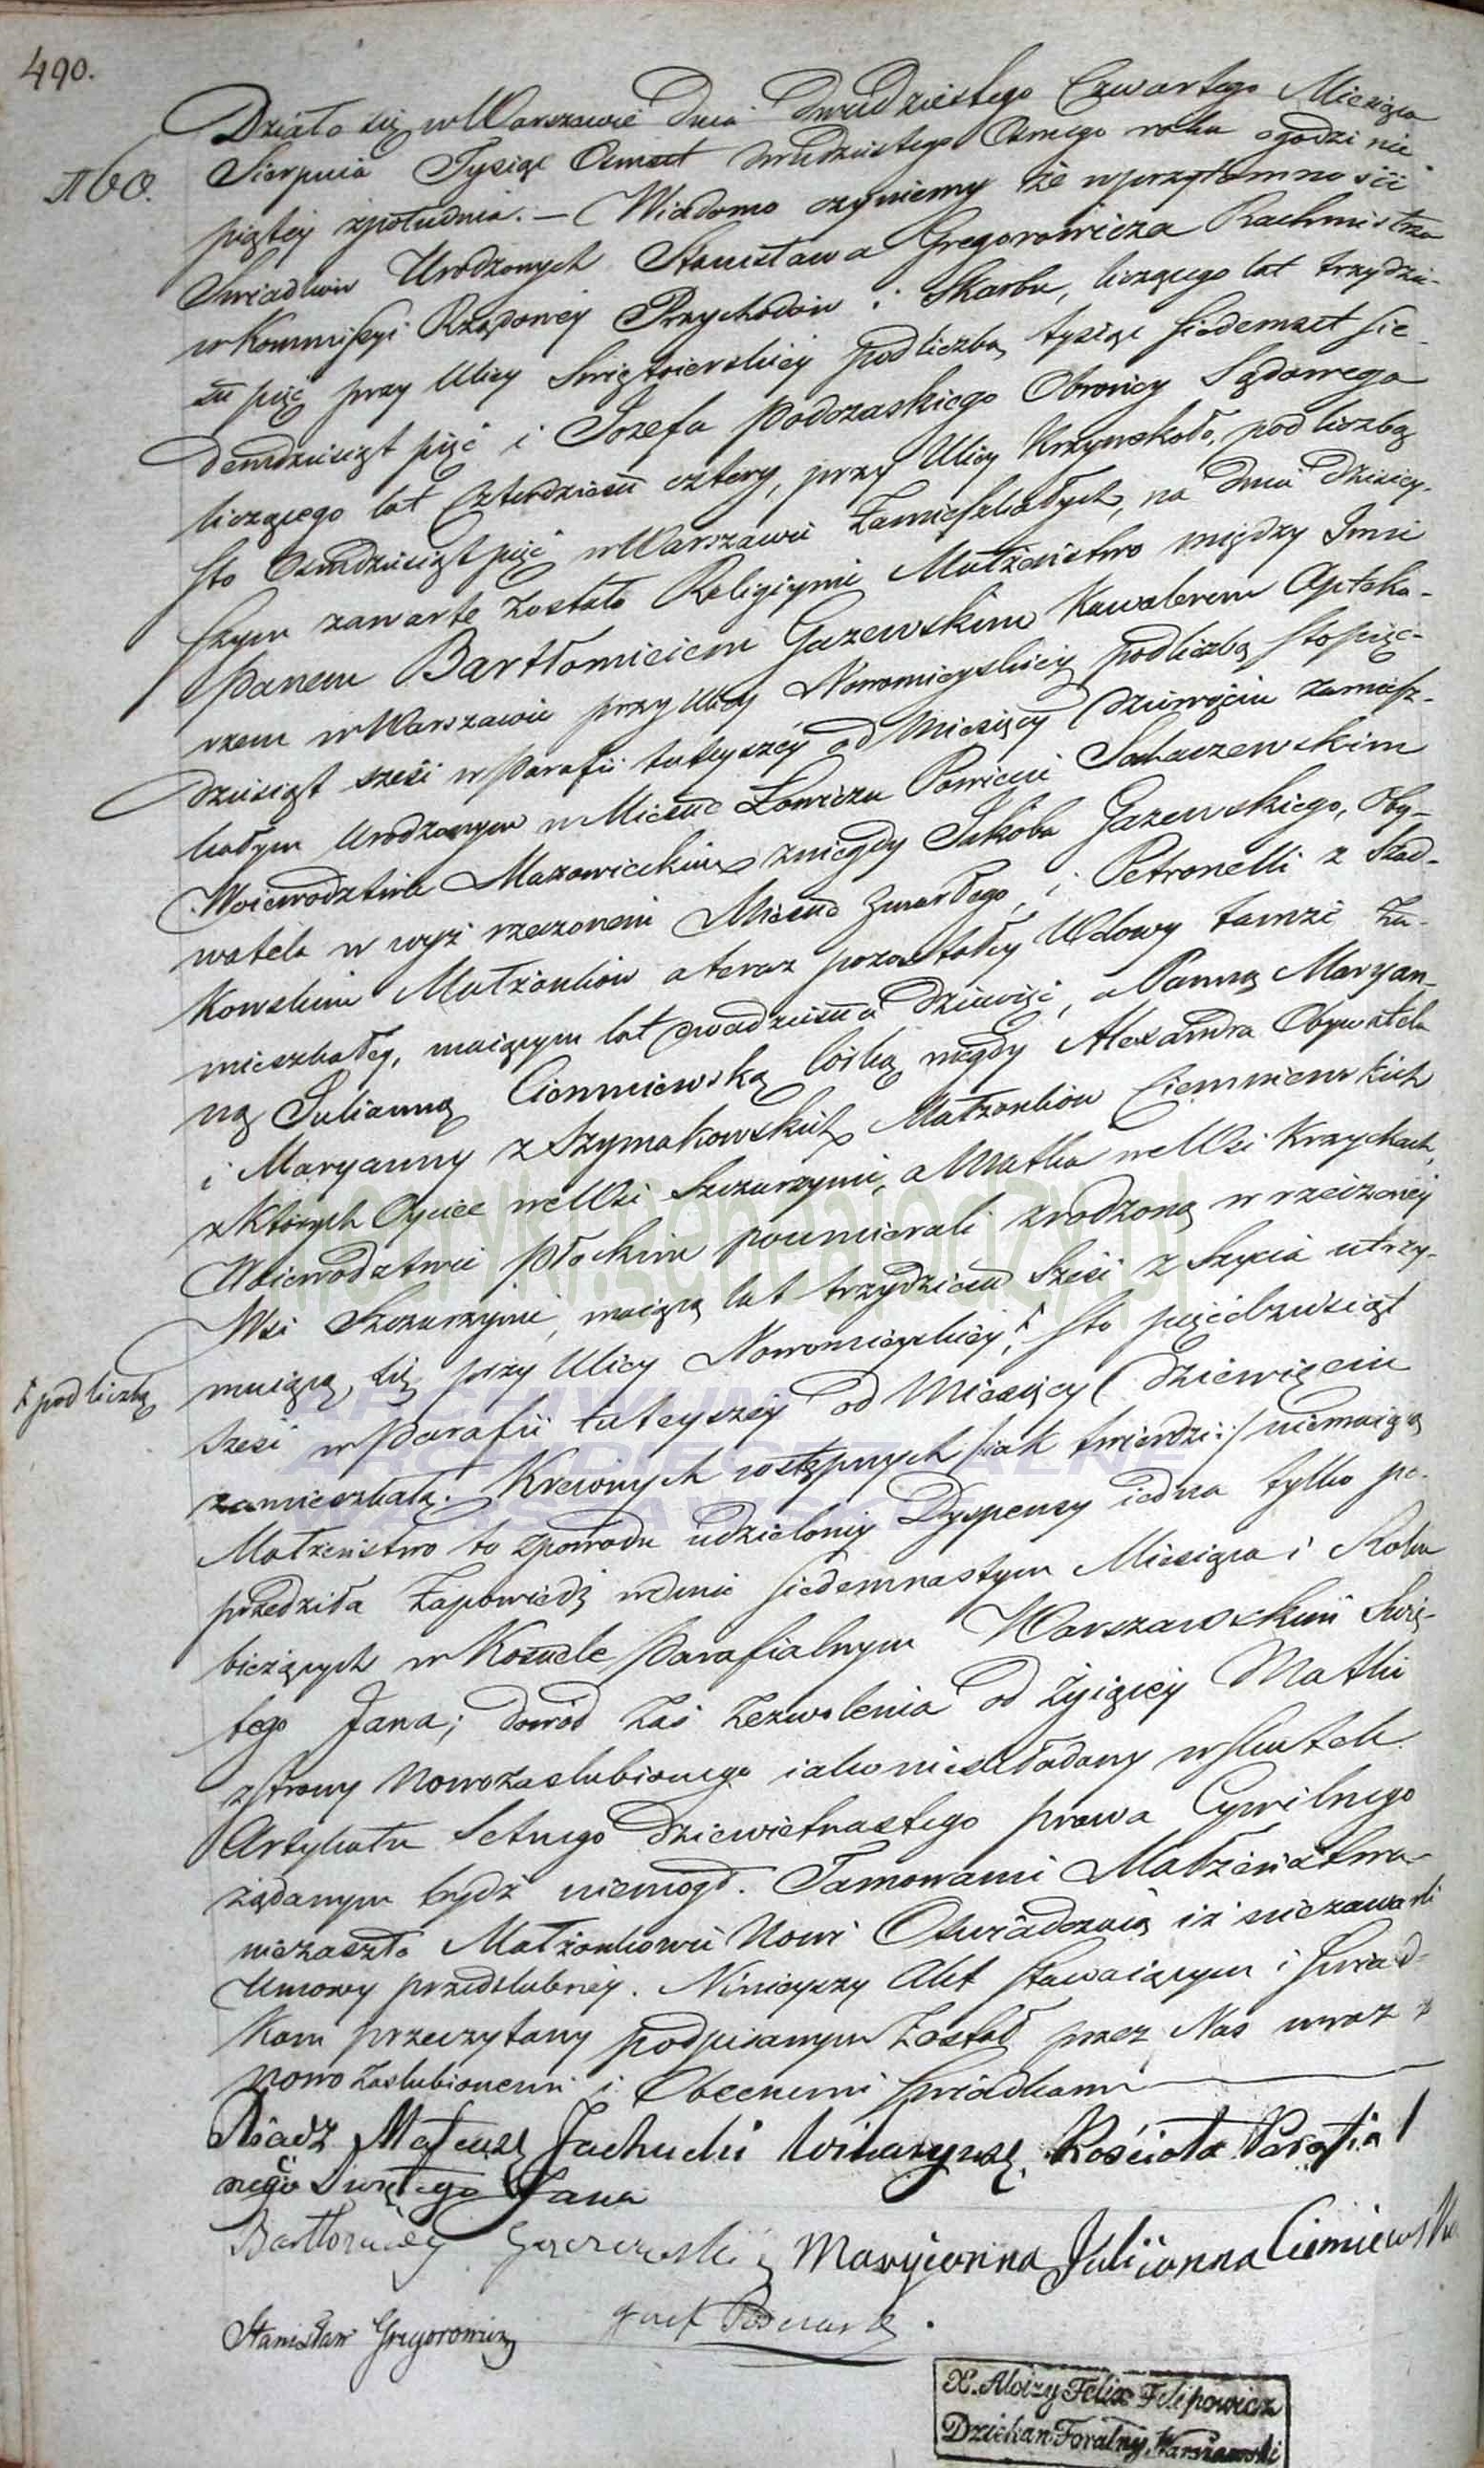 490.
Działo się w Warszawie Dnia Dwudziestego Czwartego Miesiąca
Sierpnia Tysiąc Osmset Dwudziestego Osmego roku o godzinie
piątey z południa. — Wiadomo czyniemy że w przytomności
Swiadków Urodzonych Stanisława Gregorowicza Rachmistrza
w Kommissyi Rządowey Przychodów i Skarbu, liczącego lat trzydzie-
sci pięć przy Ulicy Swiętoierskiey pod liczbą tysiąc siedemset sie-
demdziesiąt pięć i Jozefa Podczaskiego Obrońcy Sądowego
liczącego lat czterdzieści cztery, przy Ulicy Krzywekoło, pod liczbą
sto Osmdziesiąt pięć w Warszawie Zamieszkałych, na dniu dzisiey-
szym zawarte zostało Religiyne Małżeństwo między Jmci
Panem Bartłomieiem Gazewskim Kawalerem Apteka-
rzem w Warszawie przy Ulicy Nowomieyskiey pod liczbą sto pięć-
dziesiąt sześć w Parafii tuteyszéy od Miesięcy Dziewięciu zamiesz-
kałym Urodzonym w Mieście Łowiczu Powiecie Sochaczewskim
Woiewodztwie Mazowieckim z niegdy Jakóba Gazewskiego, Oby-
watela w wyż rzeczonem Mieście zmarłego, i Petronelli z Szad-
kowskich Małżonków a teraz pozostałey Wdowy tamże za-
mieszkałey, maiącym lat dwadzieścia dziewięć, a Panną Maryan-
ną Julianną Ciemniewską córką niegdy Alexandra Obywatela
i Maryanny z Szymakowskich Małżonków Ciemniewskich
z których Oyciec we Wsi Szczurzynie, a Matka we Wsi Krzychach
Woiewodztwie Płockim poumierali zrodzoną w rzeczoney
Wsi Szczurzynie, maiącą lat trzydzieści sześć z Szycia utrzy-
muiącą się przy Ulicy Nowomieyskiey, sto pięćdziesiąt
pod liczbą
sześć w Parafii tuteyszey od Miesięcy Dziewięciu
zamieszkałą. Krewnych wstępnych /:iak twierdzi:/ niemaiącą
Małżeństwo to z powodu udzieloney Dyspensy iedna tylko po-
przedziła Zapowiedź w dniu siedemnastym Miesiąca i Roku
bieżących w Kosciele Parafialnym Warszawskim Swię-
tego Jana; dowód zaś zezwolenia od żyiącey Matki
z strony Nowozaslubionego iako nieskładany w skutek
Artykułu Setnego dziewiętnastego prawa Cywilnego
żądanym bydź niemógł. Tamowanie Małżeństwa
niezaszło Małżonkowie Nowi Oswiadczaią iż niezawarli
Umowy przedslubnéy. Ninieyszy Akt stawaiącym i swiad-
kom przeczytany podpisanym został przez Nas wraz z
nowo zaslubionemi i Obecnemi swiadkami
Xiądz Mateusz Wikaryusz Kościoła Parafial
nego Swiętego Jana
Bartłomiey Gazewski Maryianna Juliianna Ciemiewska
Stanisław Gregorowicz Josef Podczaski.
X. Aloizy Felix Filipowicz
Dziekan Foralny Warszawski
matryki.genealodzy.pl
ARCHIWUM
ARCHIDIECEZJALNE
WARSZAWSKIE